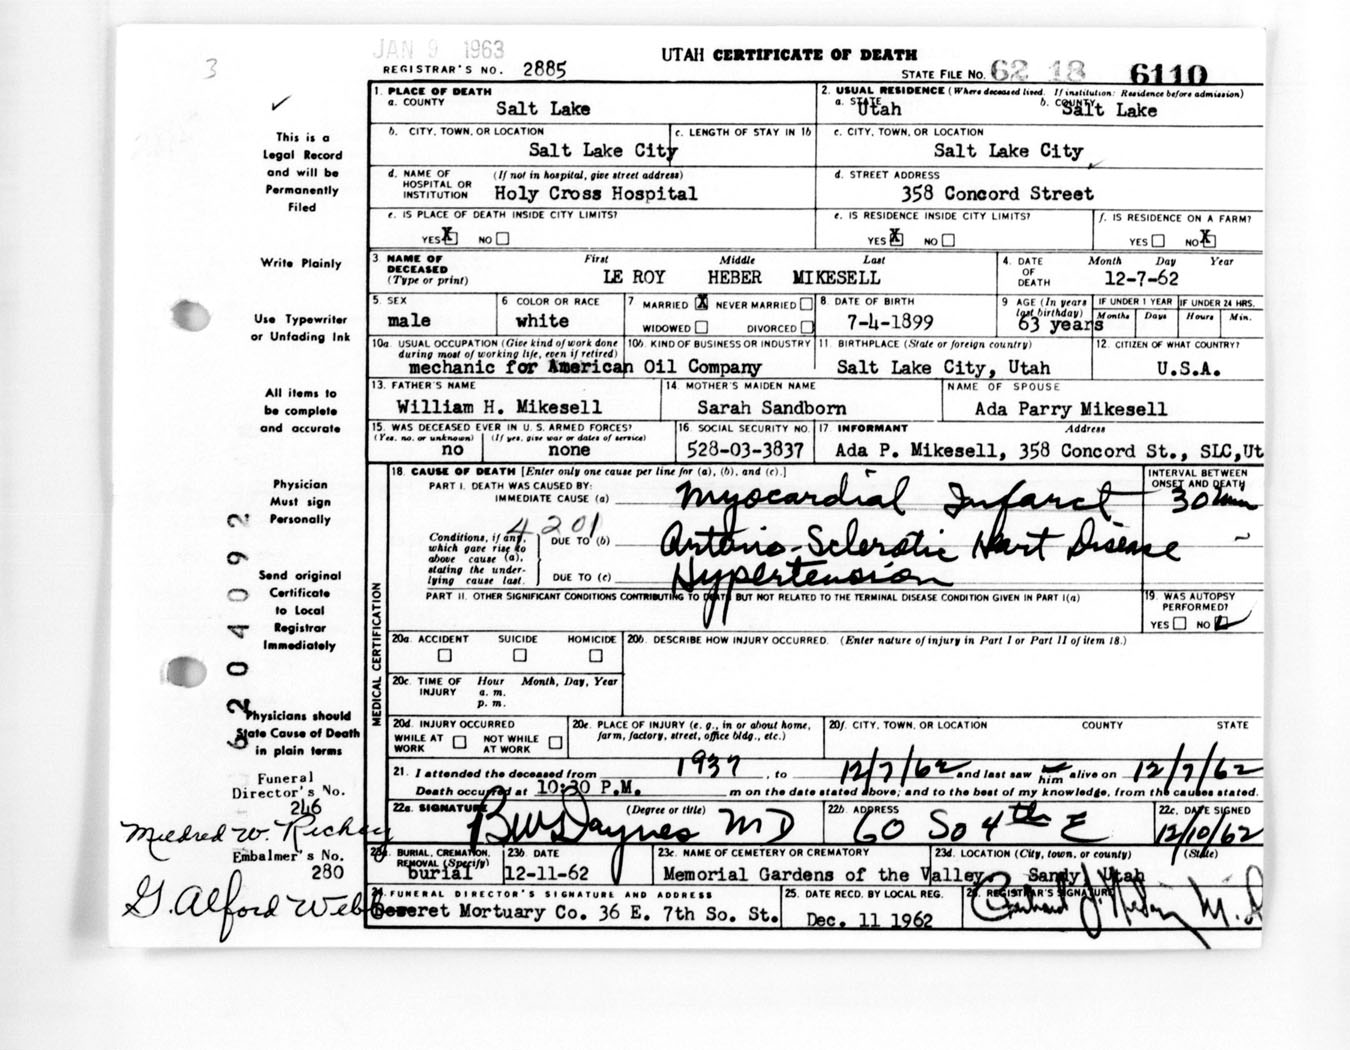 JAN 9 1963
UTAH CERTIFICATE OF DEATH
3
REGISTRAR'S NO. 2885
STATE FILE NO. 62 18 6110
1. PLACE OF DEATH
a. COUNTY Salt Lake
2. USUAL RESIDENCE (Where deceased lived. If institution: Residence before admission)
a. STATE Utah b. COUNTY Salt Lake
b. CITY, TOWN, OR LOCATION Salt Lake City
c. LENGTH OF STAY IN 1b
c. CITY, TOWN, OR LOCATION Salt Lake City
d. NAME OF HOSPITAL OR INSTITUTION (If not in hospital, give street address) Holy Cross Hospital
d. STREET ADDRESS 358 Concord Street
e. IS PLACE OF DEATH INSIDE CITY LIMITS? YES X NO
e. IS RESIDENCE INSIDE CITY LIMITS? YES X NO
f. IS RESIDENCE ON A FARM? YES NO X
3. NAME OF DECEASED (Type or print) First Middle Last
LE ROY HEBER MIKESELL
4. DATE OF DEATH Month Day Year 12-7-62
5. SEX male
6 COLOR OR RACE white
7 MARRIED X NEVER MARRIED WIDOWED DIVORCED
8 DATE OF BIRTH 7-4-1899
9 AGE (In years last birthday) 63 years
IF UNDER 1 YEAR Months Days
IF UNDER 24 HRS. Hours Min.
10a. USUAL OCCUPATION (Give kind of work done during most of working life, even if retired)
10b. KIND OF BUSINESS OR INDUSTRY
mechanic for American Oil Company
11. BIRTHPLACE (State or foreign country) Salt Lake City, Utah
12. CITIZEN OF WHAT COUNTRY? U.S.A.
13. FATHER'S NAME William H. Mikesell
14. MOTHER'S MAIDEN NAME Sarah Sandborn
NAME OF SPOUSE Ada Parry Mikesell
15. WAS DECEASED EVER IN U.S. ARMED FORCES?
(Yes, no, or unknown) no (If yes, give war or dates of service) none
16. SOCIAL SECURITY NO. 528-03-3837
17. INFORMANT Address
Ada P. Mikesell, 358 Concord St., SLC,Ut
MEDICAL CERTIFICATION
18. CAUSE OF DEATH [Enter only one cause per line for (a), (b), and (c).]
INTERVAL BETWEEN ONSET AND DEATH
PART I. DEATH WAS CAUSED BY:
IMMEDIATE CAUSE (a) Myocardial Infarct 30 min
4201
Conditions, if any, which gave rise to above cause (a), stating the underlying cause last.
DUE TO (b) Arterio-Sclerotic Heart Disease
DUE TO (c) Hypertension
PART II. OTHER SIGNIFICANT CONDITIONS CONTRIBUTING TO DEATH BUT NOT RELATED TO THE TERMINAL DISEASE CONDITION GIVEN IN PART I(a)
19. WAS AUTOPSY PERFORMED? YES NO
20a. ACCIDENT SUICIDE HOMICIDE
20b. DESCRIBE HOW INJURY OCCURRED. (Enter nature of injury in Part I or Part II of item 18.)
20c. TIME OF INJURY Hour a. m. p. m. Month, Day, Year
20d. INJURY OCCURRED WHILE AT WORK NOT WHILE AT WORK
20e. PLACE OF INJURY (e. g., in or about home, farm, factory, street, office bldg., etc.)
20f. CITY, TOWN, OR LOCATION COUNTY STATE
21. I attended the deceased from 1937, to 12/7/62 and last saw him alive on 12/7/62
Death occurred at 10:30 P.M. m on the date stated above; and to the best of my knowledge, from the causes stated.
22a. SIGNATURE (Degree or title) BW Daynes MD
22b. ADDRESS 60 So 4th E
22c. DATE SIGNED 12/10/62
23a. BURIAL, CREMATION, REMOVAL (Specify) burial
23b. DATE 12-11-62
23c. NAME OF CEMETERY OR CREMATORY Memorial Gardens of the Valley
23d. LOCATION (City, town, or county) (State) Sandy, Utah
24. FUNERAL DIRECTOR'S SIGNATURE AND ADDRESS
Deseret Mortuary Co. 36 E. 7th So. St.
25. DATE RECD. BY LOCAL REG. Dec. 11 1962
26. REGISTRAR'S SIGNATURE
M.D.
This is a
Legal Record
and will be
Permanently
Filed
Write Plainly
Use Typewriter
or Unfading Ink
All items to
be complete
and accurate
Physician
Must sign
Personally
Send original
Certificate
to Local
Registrar
Immediately
Physicians should
State Cause of Death
in plain terms
6204092
Funeral
Director's No.
246
Mildred W. Richey
Embalmer's No.
280
G. Alford Webb